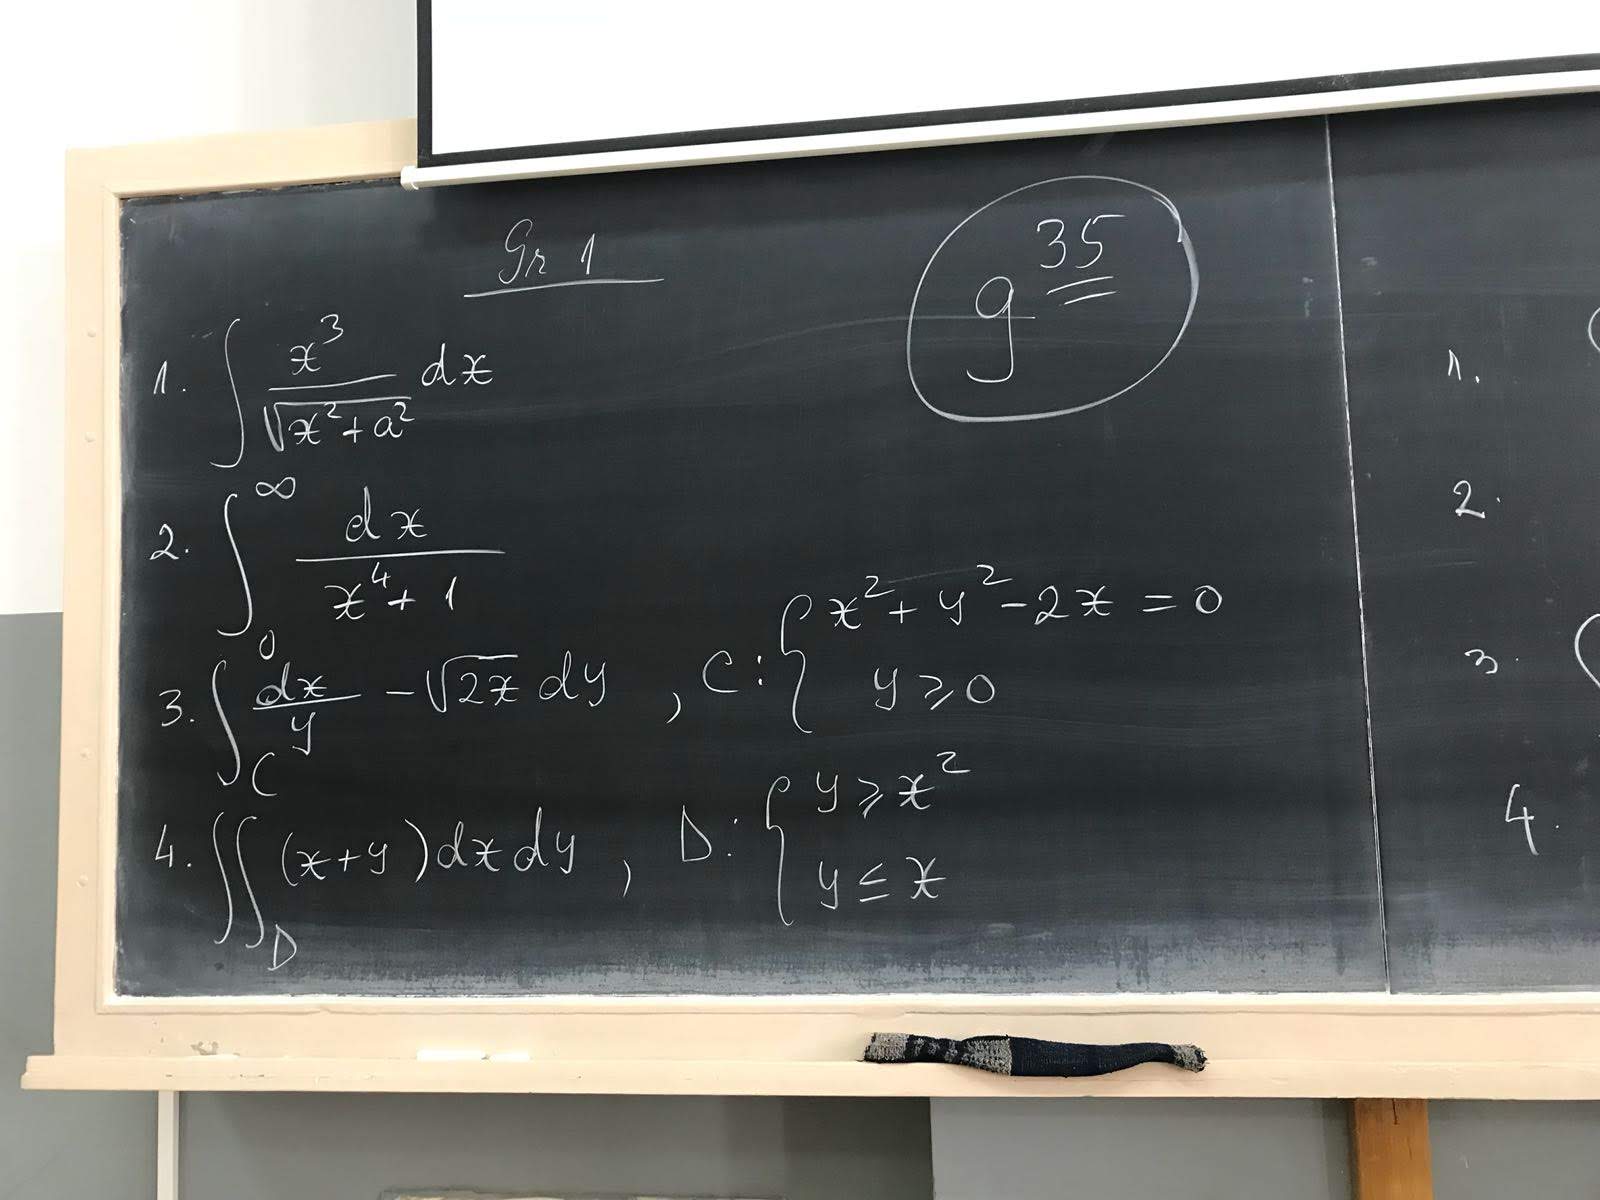 Gr 1
9^35
1. ∫ x^3/√(x^2+a^2) dx
2. ∫_0^∞ dx/(x^4+1)
3. ∫_C dx/y - √(2x) dy , C: { x^2+y^2-2x=0
y⩾0
4. ∬_D (x+y)dxdy , D: { y⩾x^2
y≤x
1.
2.
3.
4.